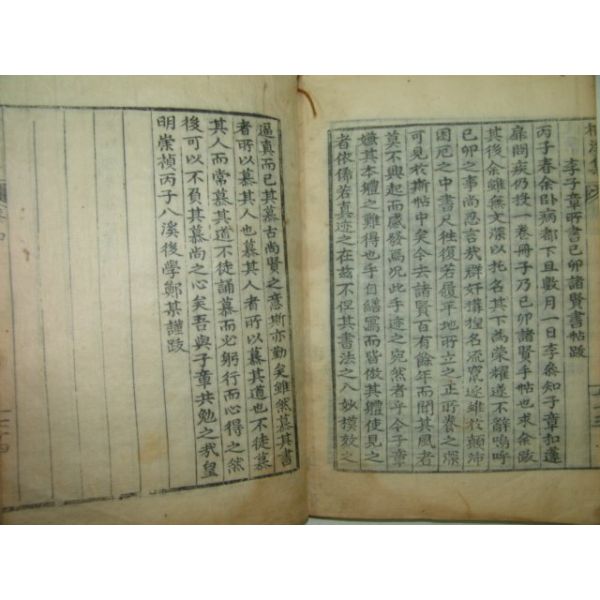 李子章所書己卯諸賢書帖跋
丙子春余卧病都下且數月一日李叅知子章扣蓬
扉問疾仍投一卷冊子乃己卯諸賢手帖也求余跋
其後余雖無文深以托名其下爲榮耀遂不辭嗚呼
己卯之事尚忍言哉群奸構捏名流竄逐雖在顚沛
困厄之中書尺徃復若履平地所立之正所養之深
可見於斯帖中矣今去諸賢百有餘年而聞其風者
莫不興起而感發焉况此手迹之宛然者乎今子章
嫌其本軆之難得也手自繕寫而皆倣其軆使見之
者依俙若真迹之在玆不但其書法之入妙模效之
逼真而已其慕古尚賢之意斯亦勤矣雖然慕其書
者所以慕其人也慕其人者所以慕其道也不徒慕
其人而常慕其道不徒誦慕而必躬行而心得之然
後可以不負其慕尚之心矣吾與子章共勉之哉皇
明崇禎丙子八溪後學鄭某謹跋